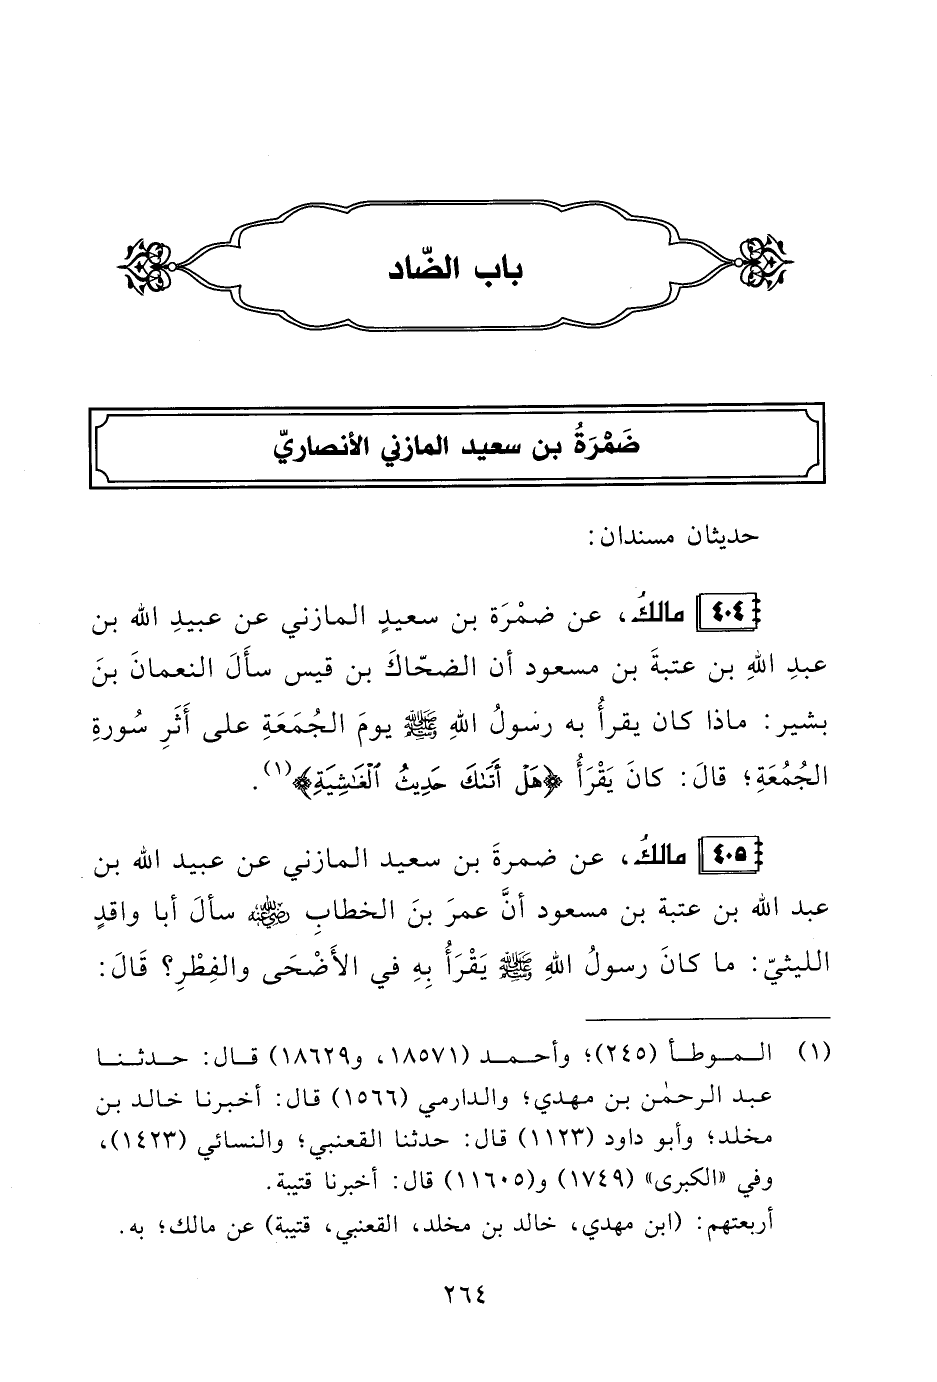 باب الضّاد
ضَمْرَةُ بن سعيد المازني الأنصاريّ
حديثان مسندان:
٤٠٤ مالكُ، عن ضمْرَة بن سعيدٍ المازني عن عبيدِ الله بن
عبدِ اللهِ بن عتبةَ بن مسعود أن الضحّاكَ بن قيس سأَلَ النعمانَ بنَ
بشير: ماذا كان يقرأُ به رسُولُ اللهِ ﷺ يومَ الجُمَعَةِ على أَثَرِ سُورةِ
الجُمُعَةِ؛ قالَ: كانَ يَقْرَأُ ﴿هَلْ أَتَىٰكَ حَدِيثُ ٱلْغَٰشِيَةِ﴾(١).
٤٠٥ مالكُ، عن ضمرةَ بن سعيد المازني عن عبيد الله بن
عبد الله بن عتبة بن مسعود أنَّ عمرَ بنَ الخطابِ رضي الله عنه سألَ أبا واقدٍ
الليثيّ: ما كانَ رسولُ اللهِ ﷺ يَقْرَأُ بِهِ في الأَضْحَى والفِطْرِ؟ قَالَ:
(١) الموطأ (٢٤٥)؛ وأحمد (١٨٥٧١، و١٨٦٢٩) قال: حدثنا
عبد الرحمٰن بن مهدي؛ والدارمي (١٥٦٦) قال: أخبرنا خالد بن
مخلد؛ وأبو داود (١١٢٣) قال: حدثنا القعنبي؛ والنسائي (١٤٢٣)،
وفي «الكبرى» (١٧٤٩) و(١١٦٠٥) قال: أخبرنا قتيبة.
أربعتهم: (ابن مهدي، خالد بن مخلد، القعنبي، قتيبة) عن مالك؛ به.
٢٦٤